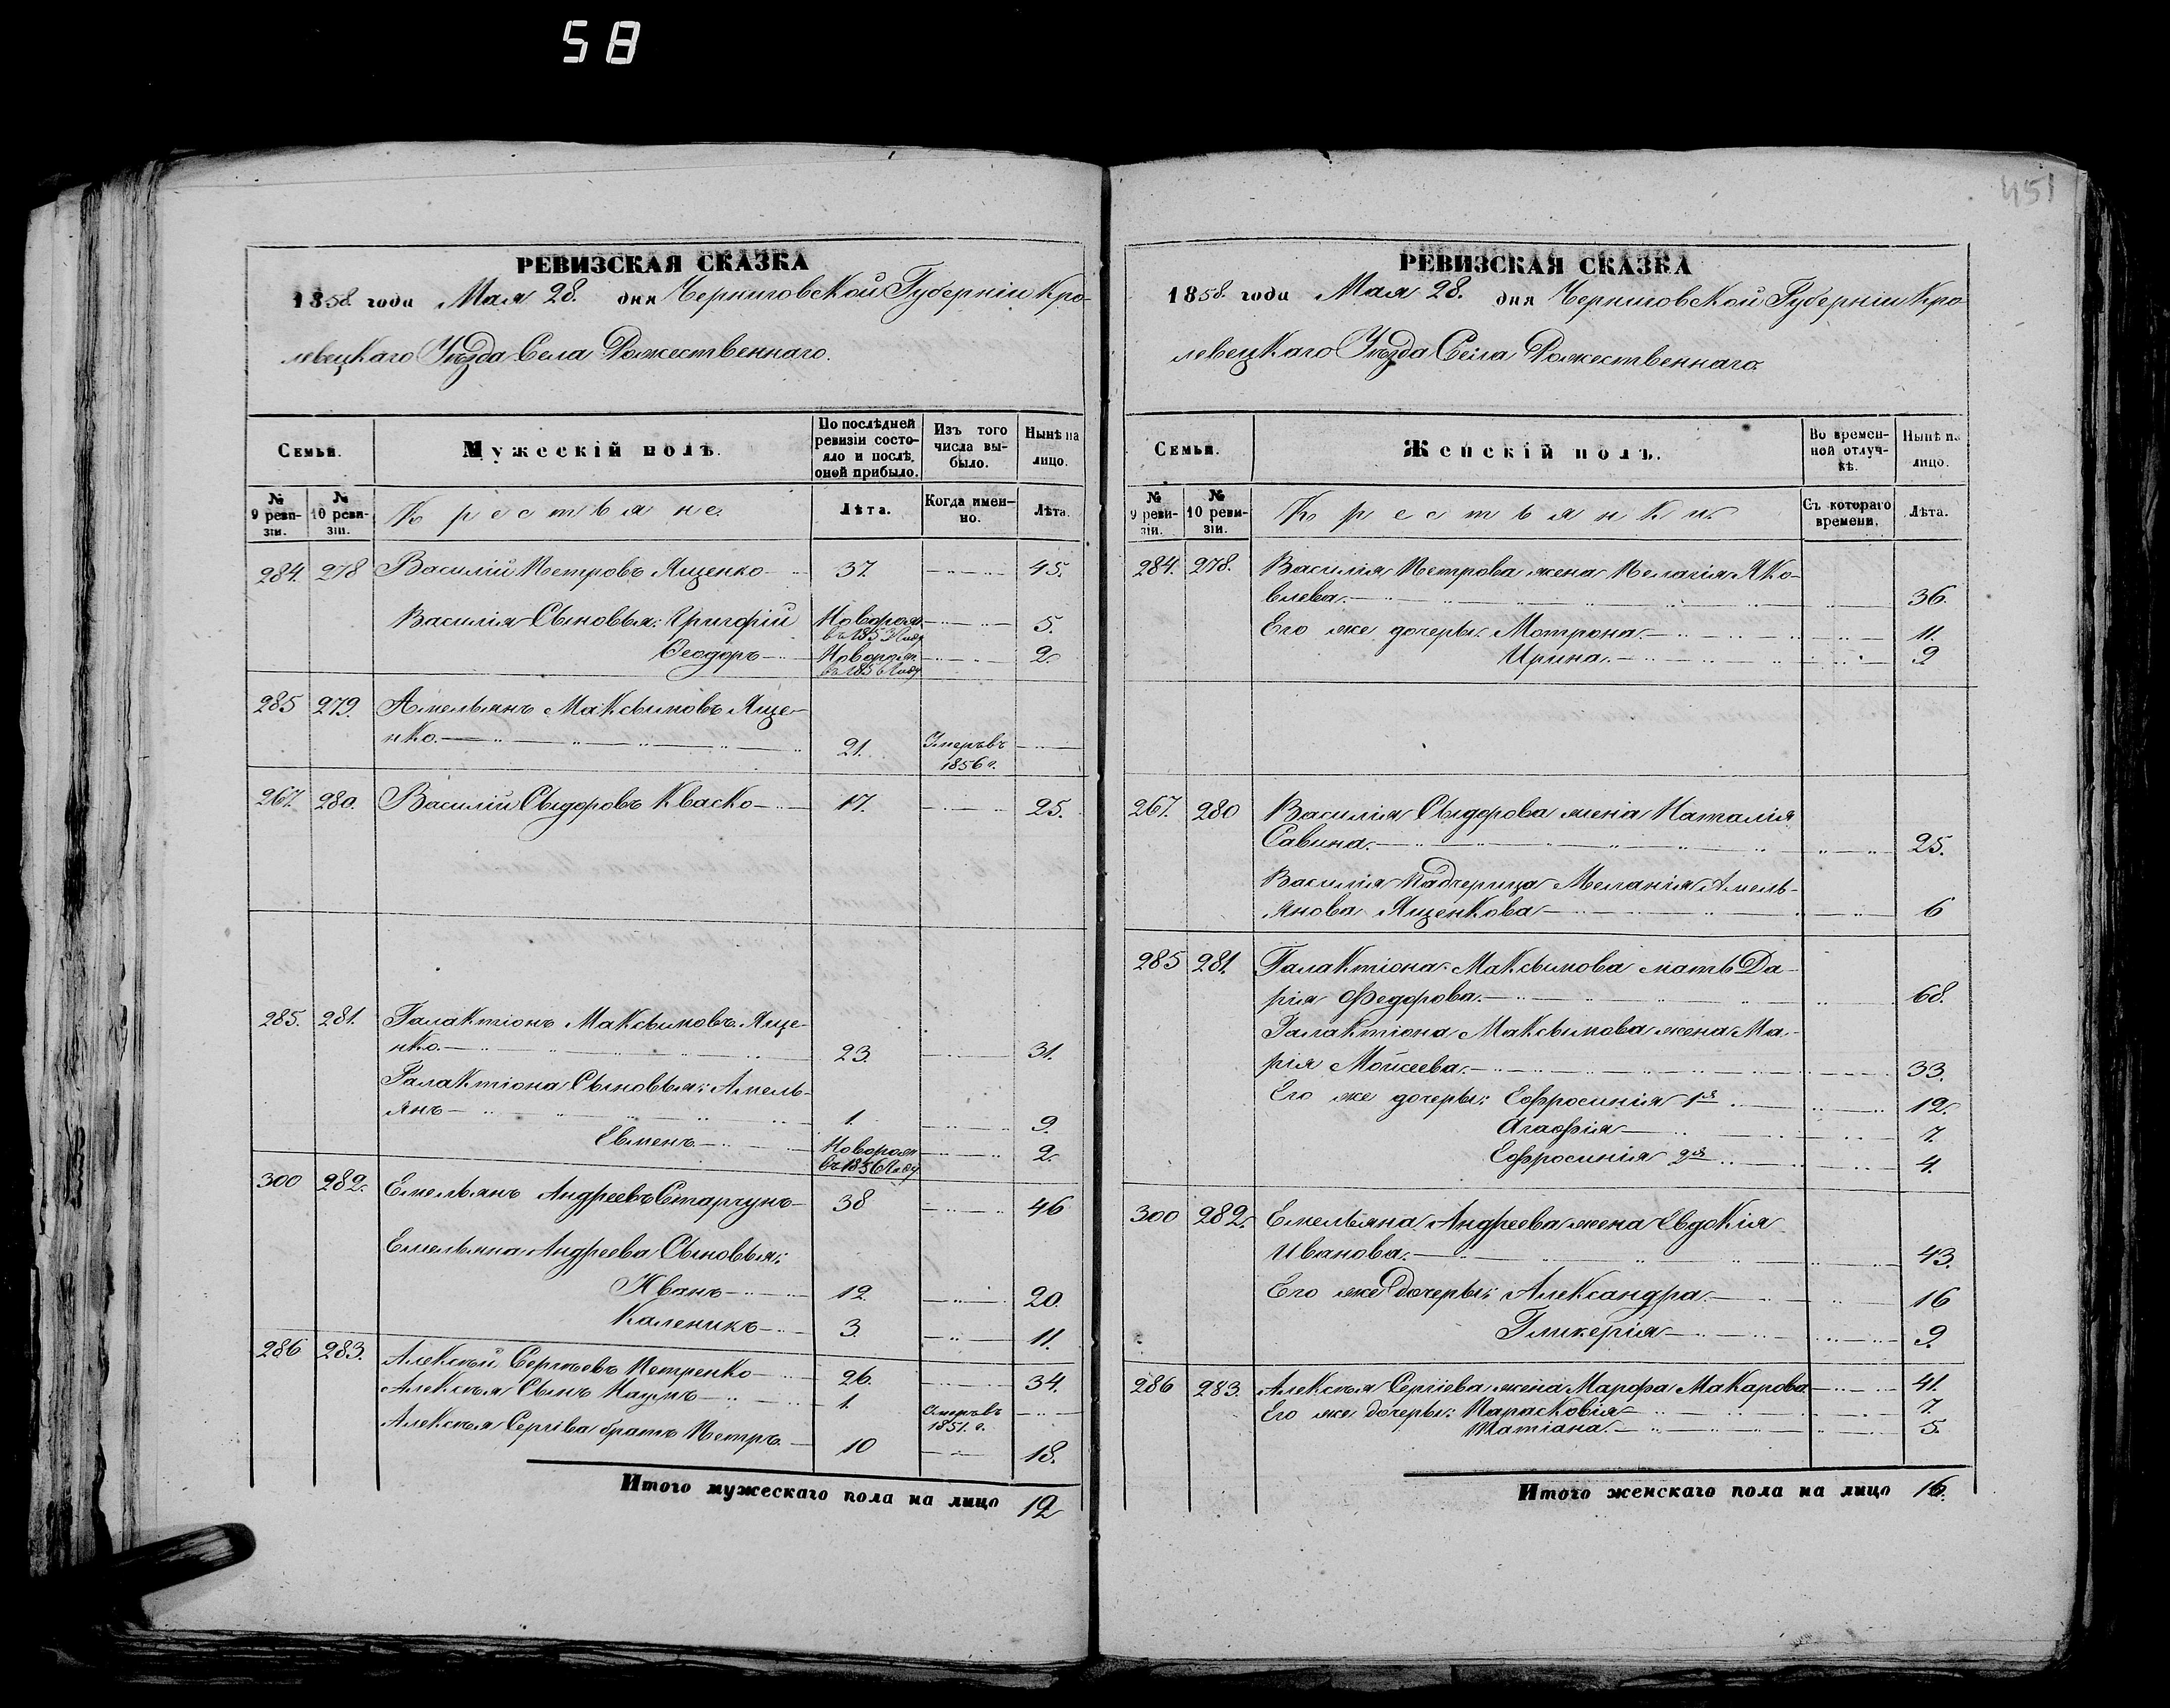 58
451
РЕВИЗСКАЯ СКАЗКА
1858 года Мая 28. дня Черниговской Губерніи Кро-
левецкаго Уѣзда Села Рожественнаго.
Семьи.
Мужескій полъ.
По послѣдней ревизіи состо-
яло и послѣ оной прибыло.
Изъ того числа вы-
было.
Нынѣ на лицо.
№ 9 реви-
зіи.
№ 10 реви-
зіи.
Крестьяне.
Лѣта.
Когда имен-
но.
Лѣта.
284. 278 Василій Петровъ Ященко 37. 45.
Василія Сыновья: Григорій Новорож въ 1853 Году 5.
Феодоръ Новорож въ 1856 Году 2.
285 279. Амельянъ Максимовъ Яще-
нко. 21. Умеръ въ 1856 г.
267. 280. Василій Сыдоровъ Кваско 17. 25.
285. 281. Галактіонъ Максимовъ Яще-
нко. 23. 31.
Галактіона Сыновья: Амель-
янъ 1. 9.
Евменъ Новорож въ 1856 Году 2.
300 282. Емельянъ Андреевъ Старчунъ 38 46
Емельяна Андреева Сыновья:
Иванъ 12. 20.
Каленикъ 3. 11.
286 283. Алексѣй Сергѣевъ Петренко 26. 34.
Алексѣя Сынъ Наумъ 1. Умеръ въ 1851. г.
Алексѣя Сергіева братъ Петръ 10 18.
Итого мужескаго пола на лицо 12
РЕВИЗСКАЯ СКАЗКА
1858. года Мая 28. дня Черниговской Губерніи Кро-
левецкаго Уѣзда Села Рожественнаго.
Семьи.
Женскій полъ.
Во времен-
ной отлуч-
кѣ.
Нынѣ на лицо.
№ 9 реви-
зіи.
№ 10 реви-
зіи.
Крестьянки.
Съ котораго времени.
Лѣта.
284. 278. Василія Петрова жена Пелагія Яко-
влева. 36.
Его же дочеры: Мотрона 11.
Ирина. 9
267. 280 Василія Сыдорова жена Наталія
Савина. 25.
Василія Падчерица Меланія Амель-
янова Ященкова 6
285 281. Галактіона Максимова мать Да-
рія Федорова. 68.
Галактіона Максимова жена Ма-
рія Мойсеева. 33.
Его же дочеры: Ефросинія 1я 12.
Агафія 7.
Ефросинія 2я 4.
300 282. Емельяна Андреева жена Евдокія
Иванова. 43.
Его же Дочеры: Александра 16
Гликерія 9.
286 283. Алексѣя Сергіева жена Марфа Макарова 41.
Его же Дочеры: Парасковія 7.
Татіана. 5.
Итого женскаго пола на лицо 16.